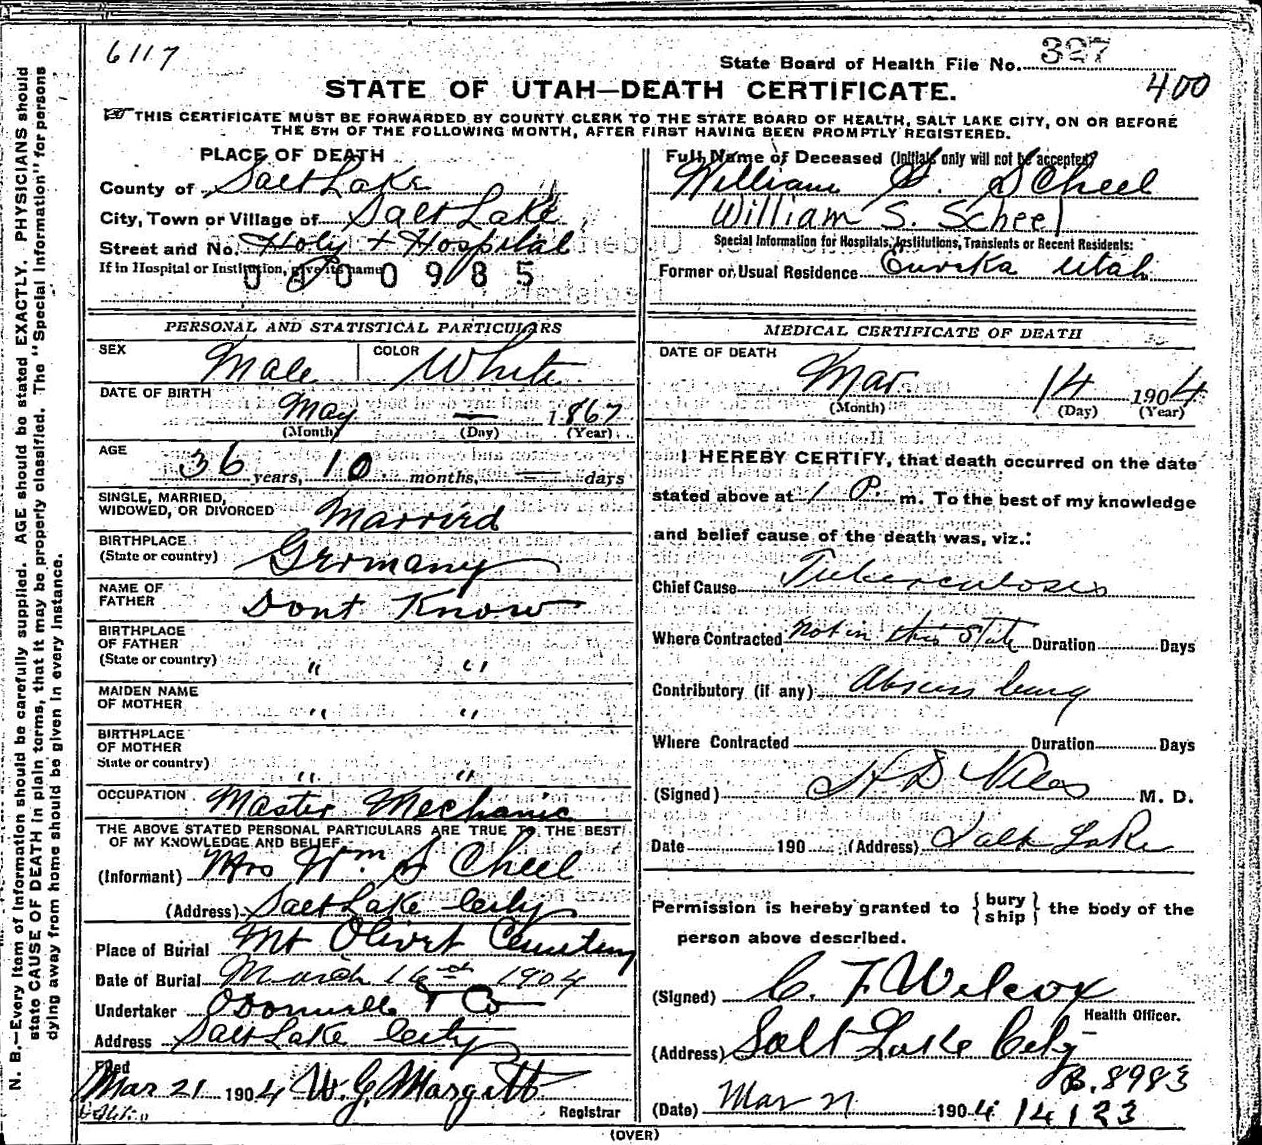 6117
State Board of Health File No. 327
400
STATE OF UTAH—DEATH CERTIFICATE.
THIS CERTIFICATE MUST BE FORWARDED BY COUNTY CLERK TO THE STATE BOARD OF HEALTH, SALT LAKE CITY, ON OR BEFORE
THE 5TH OF THE FOLLOWING MONTH, AFTER FIRST HAVING BEEN PROMPTLY REGISTERED.
PLACE OF DEATH
County of Salt Lake
City, Town or Village of Salt Lake
Street and No. Holy + Hospital
If in Hospital or Institution, give its name
0400985
Full Name of Deceased (Initials only will not be accepted)
William S. Scheel
William S. Scheel
Special Information for Hospitals, Institutions, Transients or Recent Residents:
Former or Usual Residence Eureka Utah
PERSONAL AND STATISTICAL PARTICULARS
SEX Male COLOR White
DATE OF BIRTH
May — 1867
(Month) (Day) (Year)
AGE
36 years, 10 months, — days
SINGLE, MARRIED,
WIDOWED, OR DIVORCED Married
BIRTHPLACE
(State or country) Germany
NAME OF
FATHER Dont Know
BIRTHPLACE
OF FATHER
(State or country) " "
MAIDEN NAME
OF MOTHER " "
BIRTHPLACE
OF MOTHER
State or country) " "
OCCUPATION Master Mechanic
THE ABOVE STATED PERSONAL PARTICULARS ARE TRUE TO THE BEST
OF MY KNOWLEDGE AND BELIEF
(Informant) Mrs Wm S Cheel
(Address) Salt Lake City
Place of Burial Mt Olivet Cemetery
Date of Burial March 16th 1904
Undertaker O'Donnell & Co
Address Salt Lake City
Filed
Mar 21 1904 W. G. Margetts
Registrar
MEDICAL CERTIFICATE OF DEATH
DATE OF DEATH
Mar. 14 1904
(Month) (Day) (Year)
I HEREBY CERTIFY, that death occurred on the date
stated above at 1 P. m. To the best of my knowledge
and belief cause of the death was, viz.:
Chief Cause Tuberculosis
Where Contracted not in this State Duration Days
Contributory (if any) Abscess lung
Where Contracted Duration Days
(Signed) H D Niles M. D.
Date 190 (Address) Salt Lake
Permission is hereby granted to {bury ship} the body of the
person above described.
(Signed) C. F. Wilcox
Health Officer.
(Address) Salt Lake City
B. 8983
(Date) Mar 21 1904 14123
(OVER)
N. B.—Every item of information should be carefully supplied. AGE should be stated EXACTLY. PHYSICIANS should
state CAUSE OF DEATH in plain terms, that it may be properly classified. The "Special Information" for persons
dying away from home should be given in every instance.